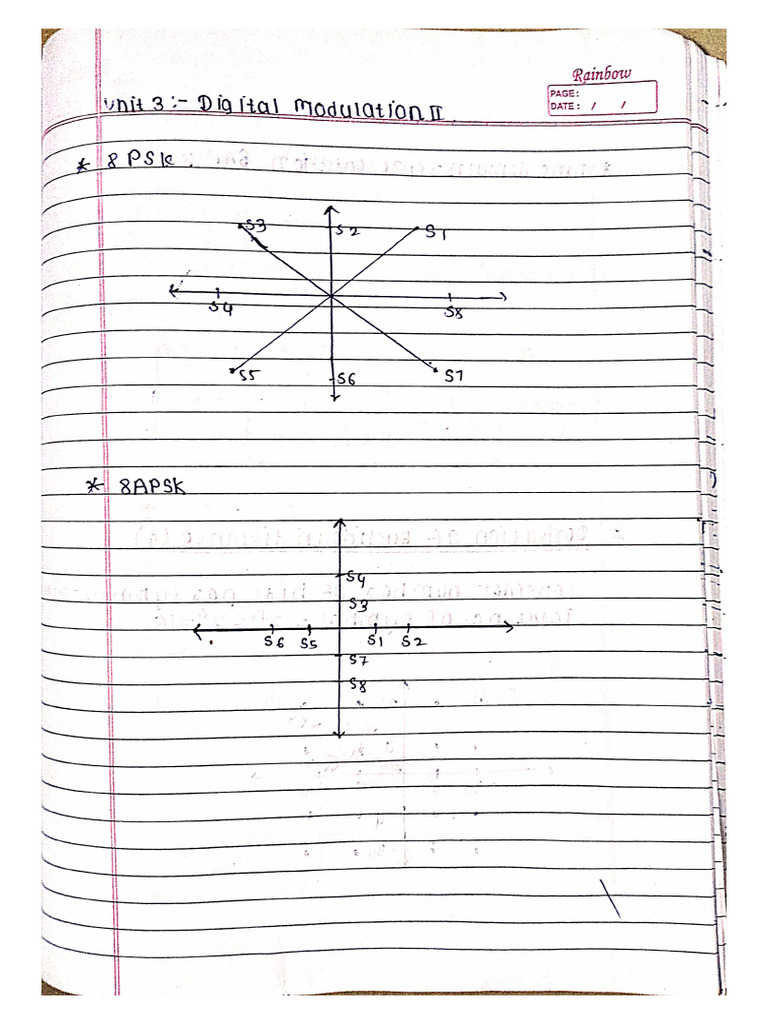 Rainbow
PAGE:
DATE: / /
Unit 3 :- Digital Modulation II
* 8 PSK.
S3 S2 S1
S4 S8
S5 S6 S7
* 8APSK
S4
S3
S6 S5 S1 S2
S7
S8